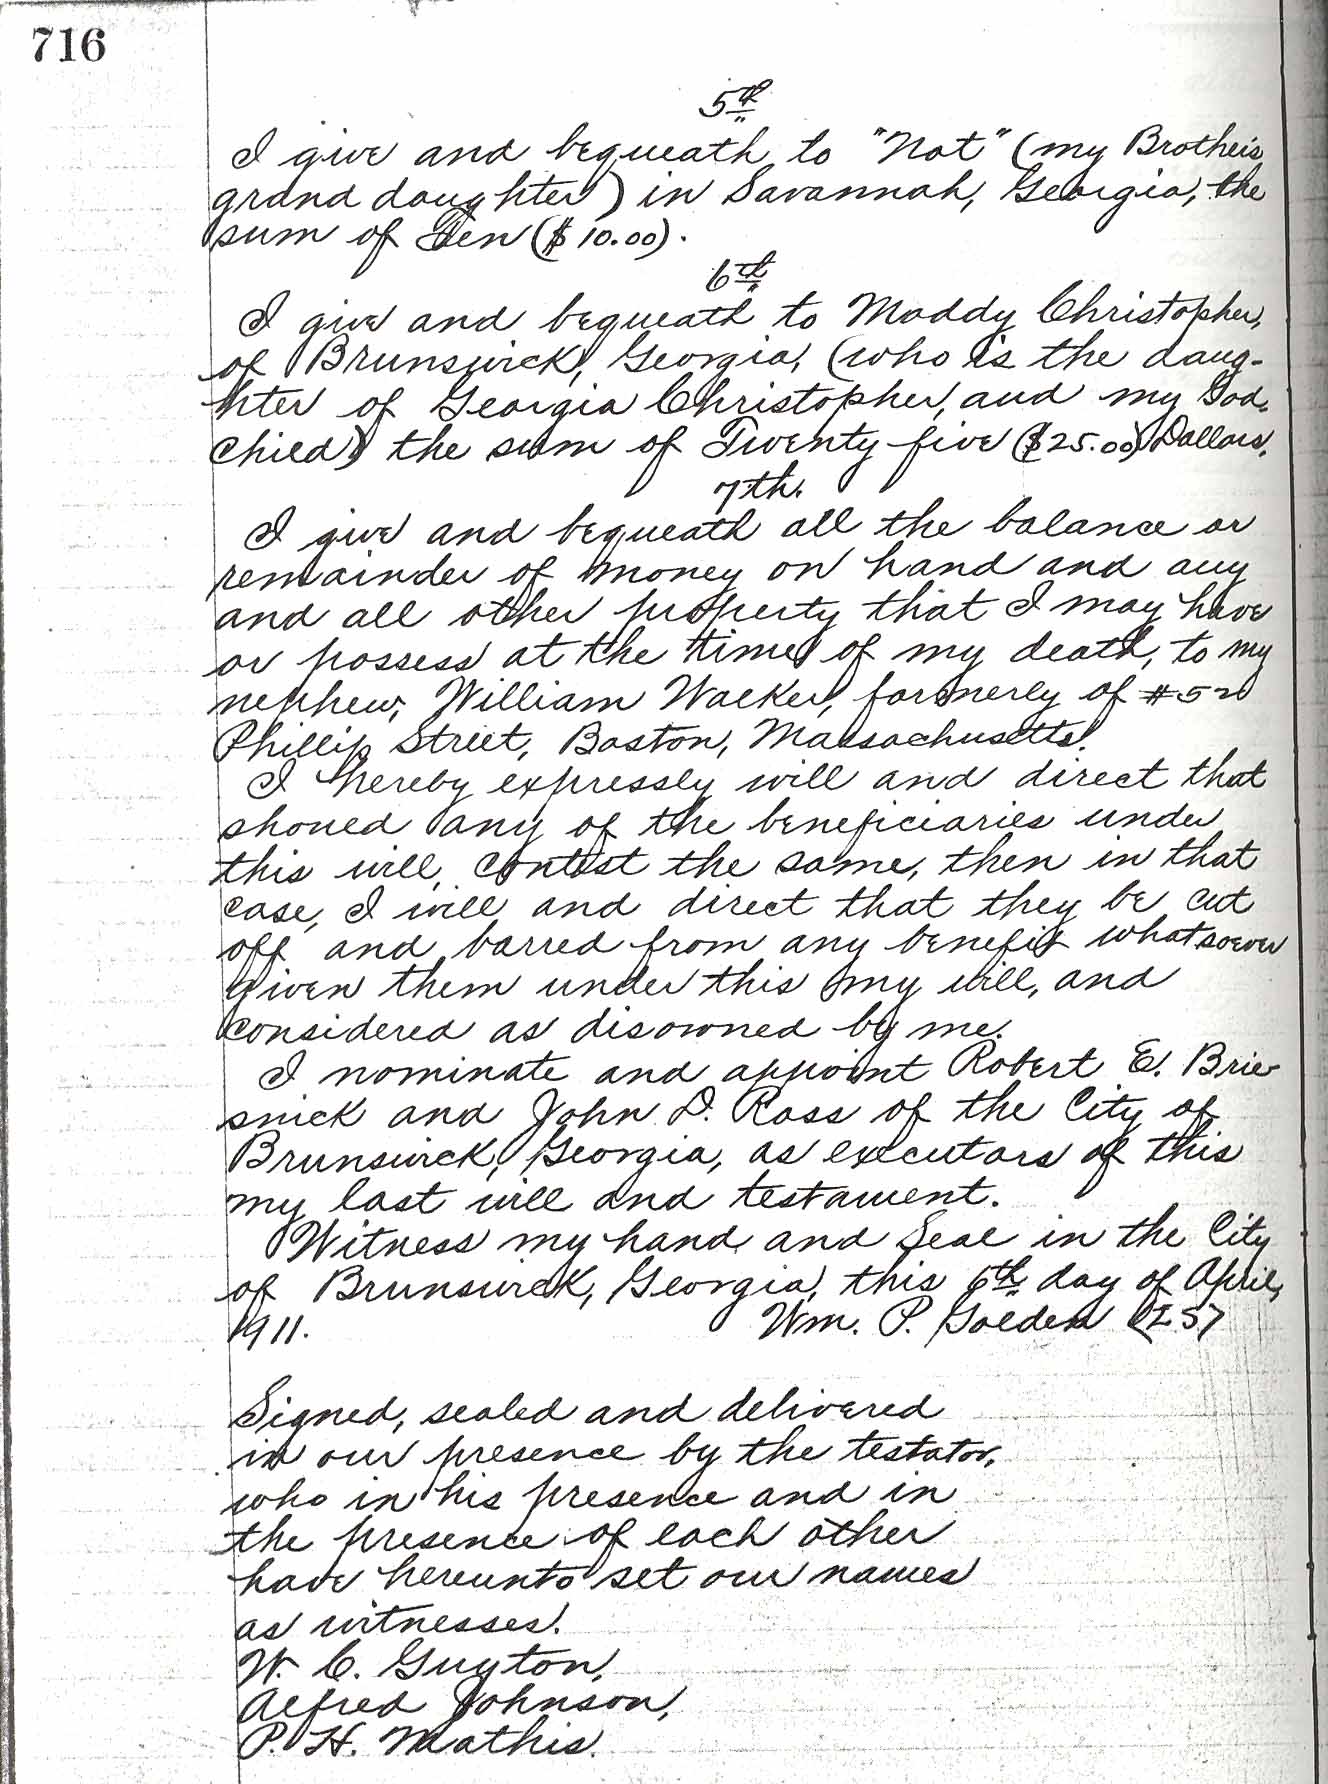 716
5th
I give and bequeath to "Nat" (my Brother's
grand daughter) in Savannah, Georgia, the
sum of Ten ($10.00).
6th
I give and bequeath to Maddy Christopher,
of Brunswick, Georgia, (who is the daug-
hter of Georgia Christopher, and my God.
child) the sum of Twenty five ($25.00) Dollars.
7th.
I give and bequeath all the balance or
remainder of money on hand and any
and all other property that I may have
or possess at the time of my death, to my
nephew, William Walker, formerly of #52
Phillip Street, Boston, Massachusetts.
I hereby expressly will and direct that
should any of the beneficiaries under
this will, contest the same, then in that
case, I will and direct that they be cut
off and barred from any benefit whatsoever
given them under this my will, and
considered as disowned by me.
I nominate and appoint Robert E. Brie-
snick and John D. Ross of the City of
Brunswick, Georgia, as executors of this
my last will and testament.
Witness my hand and Seal in the City
of Brunswick, Georgia, this 6th day of April,
1911. Wm. P. Golden (LS)
Signed, sealed and delivered
in our presence by the testator,
who in his presence and in
the presence of each other
have hereunto set our names
as witnesses.
W. C. Guyton,
Alfred Johnson,
P. H. Mathis.